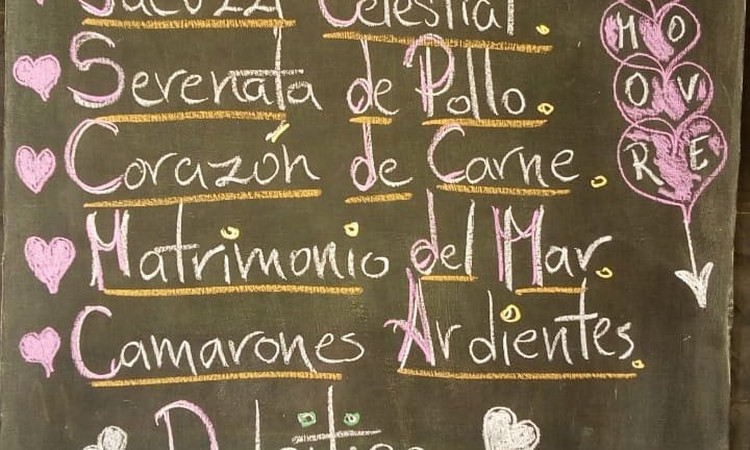 Celestial.
Serenata de Pollo.
Corazón de Carne.
Matrimonio del Mar.
Camarones Ardientes.
M O
O V
R E